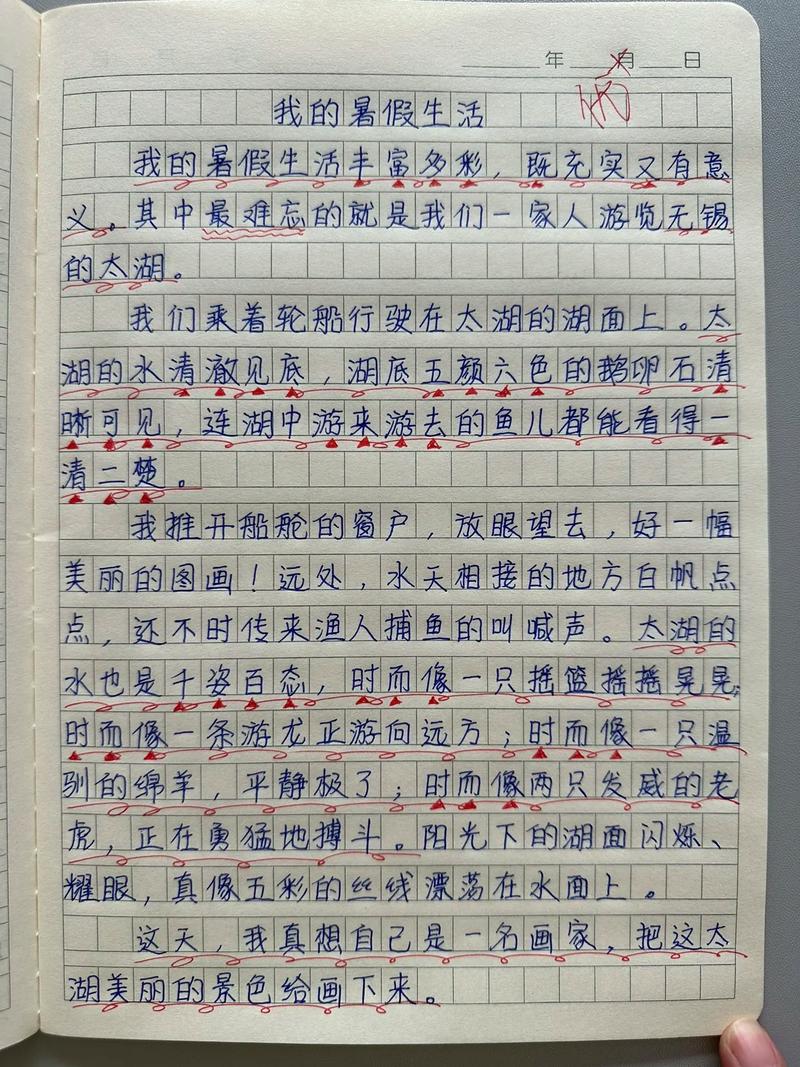 年 月 日
我的暑假生活
我的暑假生活丰富多彩，既充实又有意
义。其中最难忘的就是我们一家人游览无锡
的太湖。
我们乘着轮船行驶在太湖的湖面上。太
湖的水清澈见底，湖底五颜六色的鹅卵石清
晰可见，连湖中游来游去的鱼儿都能看得一
清二楚。
我推开船舱的窗户，放眼望去，好一幅
美丽的图画！远处，水天相接的地方白帆点
点，还不时传来渔人捕鱼的叫喊声。太湖的
水也是千姿百态，时而像一只摇篮摇摇晃晃；
时而像一条游龙正游向远方；时而像一只温
驯的绵羊，平静极了；时而像两只发威的老
虎，正在勇猛地搏斗。阳光下的湖面闪烁、
耀眼，真像五彩的丝线漂荡在水面上。
这天，我真想自己是一名画家，把这太
湖美丽的景色给画下来。